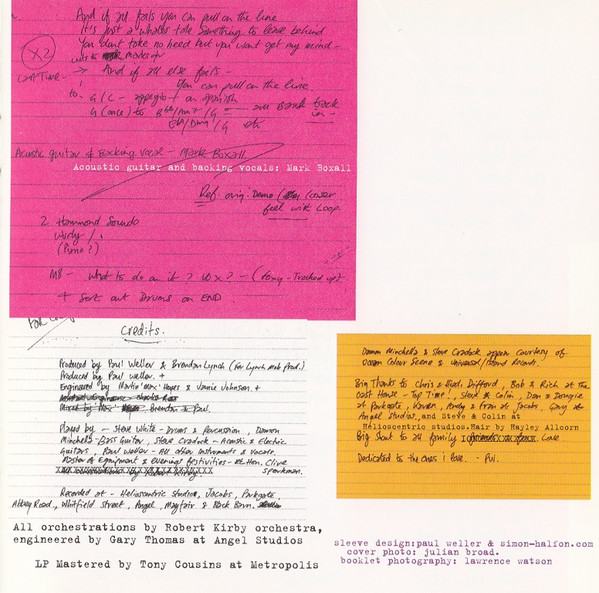 And if all fails you can pull on the line
It's just a whales tale something to leave behind
You don't take no heed but you want get my mind -
X2
→ And if all else fails -
You can pull on the line.
to G/C - appegio - on spanish
Acoustic guitar & Backing vocal - Mark Boxall
Acoustic guitar and backing vocals: Mark Boxall
Ref. orig. Demo cover
feel with Loop
2 Hammond Sounds
Wurly / ,
(Piano?)
MB - What to do on it? (foxy - Tracked up?)
+ Sort out Drums on END.
Credits.
Produced by Paul Weller & Brendan Lynch (for Lynch Mob Prod.)
Produced by Paul Weller. +
Engineered by Martin 'Max' Heyes & Jamie Johnson. +
Mixed by Brendan & Paul.
Played by - Steve White - Drums & percussion, Damon
Minchella - Bass Guitar, Steve Cradock - Acoustic & Electric
Guitars, Paul Weller - All other instruments & Vocals.
Master of Equipment & Evening festivities - Rt. Hon. Clive
Sparkman.
Recorded at - Heliocentric Studios, Jacobs, Parkgate,
Abbey Road, Whitfield Street, Angel, Mayfair & Black Barn.
All orchestrations by Robert Kirby orchestra,
engineered by Gary Thomas at Angel Studios
LP Mastered by Tony Cousins at Metropolis
Damon Minchella & Steve Cradock appear courtesy of
Ocean Colour Scene & Universal/Island Records.
Big Thanks to Chris & Difford, Bob & Rich at the
East House - Top Time!, Steve & Colin, Dan & Dougie
at Parkgate, Karen, Andy & Fran at Jacobs, Gary at
Angel Studios, and Steve & Colin at
Helioscentric studios. Hair by Hayley Allcorn
Big Shout to all family Love
Dedicated to the ones i love. - PW.
sleeve design:paul weller & simon-halfon.com
cover photo: julian broad.
booklet photography: lawrence watson